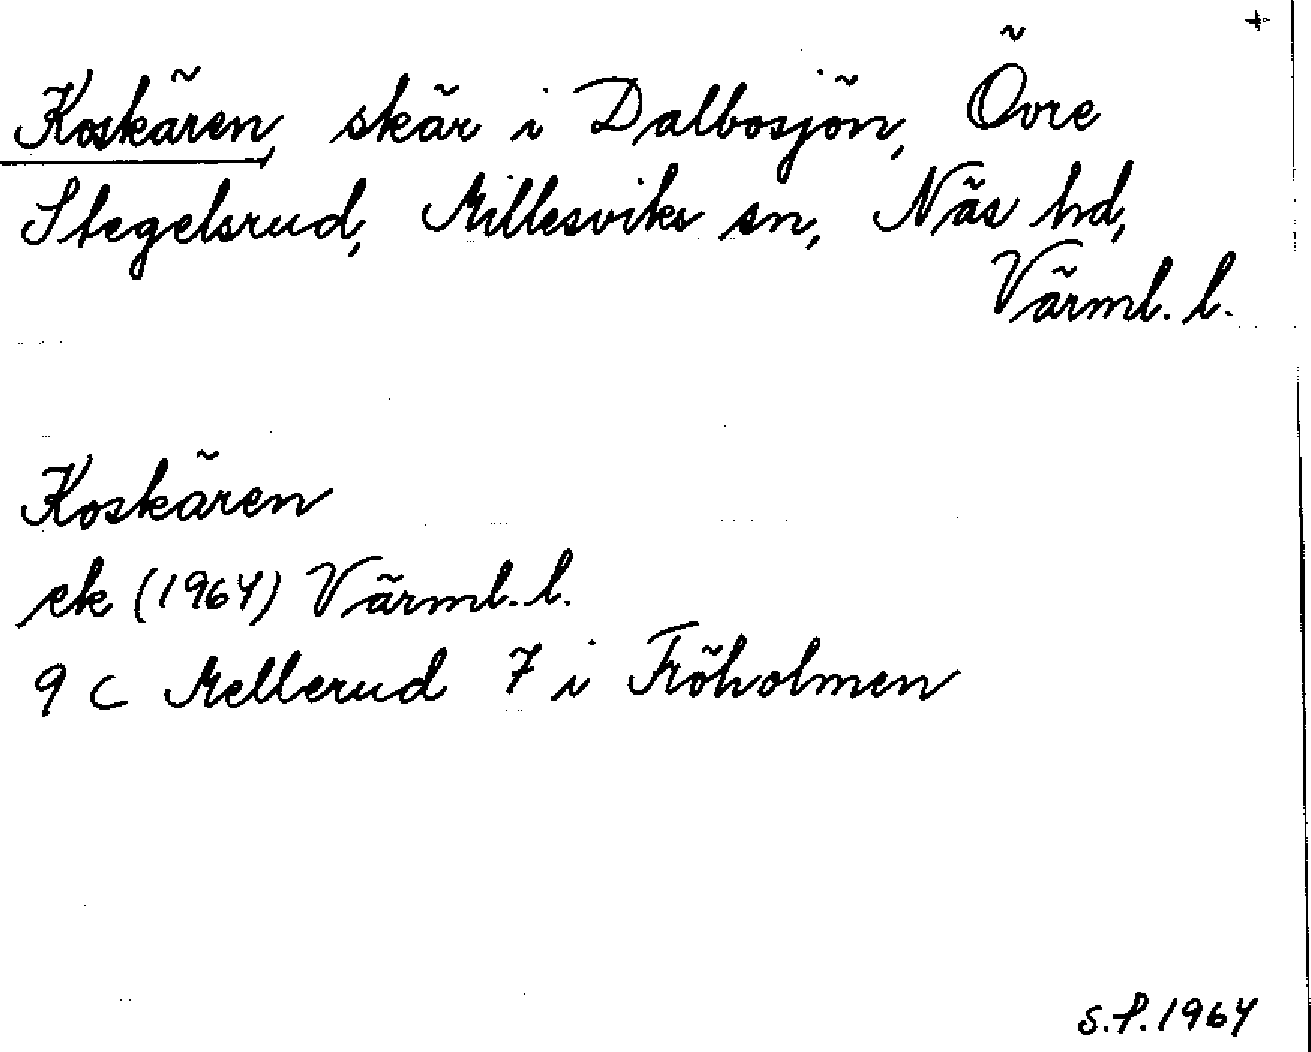 +
Koskären, skär i Dalbosjön, Övre
Stegelsrud, Millesviks sn, Näs hd,
Värml. l.
Koskären
ek (1964) Värml. l.
9 C Mellerud 7 i Fröholmen
S.P. 1964